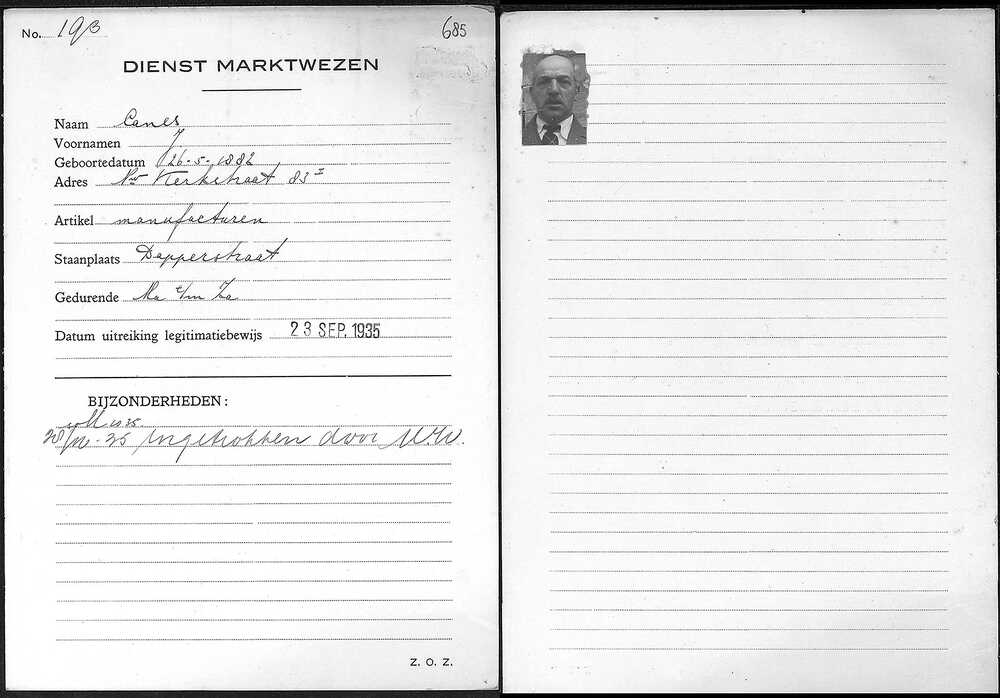 No. 193
685
DIENST MARKTWEZEN
Naam Canes
Voornamen J
Geboortedatum 26-5-1882
Adres Nw Kerkstraat 83 I
Artikel manufacturen
Staanplaats Dapperstraat
Gedurende Ma t/m Za
Datum uitreiking legitimatiebewijs 23 SEP. 1935
BIJZONDERHEDEN:
35 Ingetrokken door M.W.
Z. O. Z.